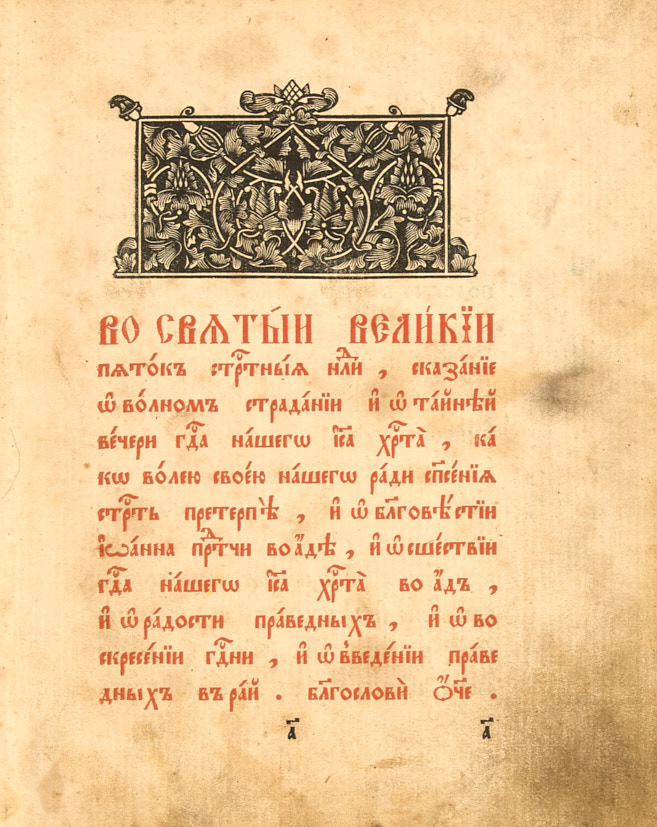 во свѧты́и вели́кїи
пѧто́къ стрⷭ҇тныѧ нлⷣи , сказа́нїе
ѡ҆ во́лномъ страда́нїи и҆ ѡ҆ та́йнѣй
ве́чери гдⷭ҇а на́шегѡ і҆с҃а хрⷭ҇та̀ , ка́
кѡ во́лею свое́ю на́шегѡ ра́ди сп҃се́нїѧ
стрⷭ҇ть претерпѣ̀ , и҆ ѡ҆ бл҃говѣ́стїи
і҆ѡа́нна прⷣтчи во а҆́дѣ , и҆ ѡ҆ сше́ствїи
гдⷭ҇а на́шегѡ і҆с҃а хрⷭ҇та̀ во а҆́дъ ,
и҆ ѡ҆ ра́дости пра́ведныхъ , и҆ ѡ҆ во
скресе́нїи гдⷭ҇ни , и҆ ѡ҆ введе́нїи пра́ве
дныхъ въ ра́й . бл҃гословѝ ѻ҆́ч҃е .
а҃ а҃